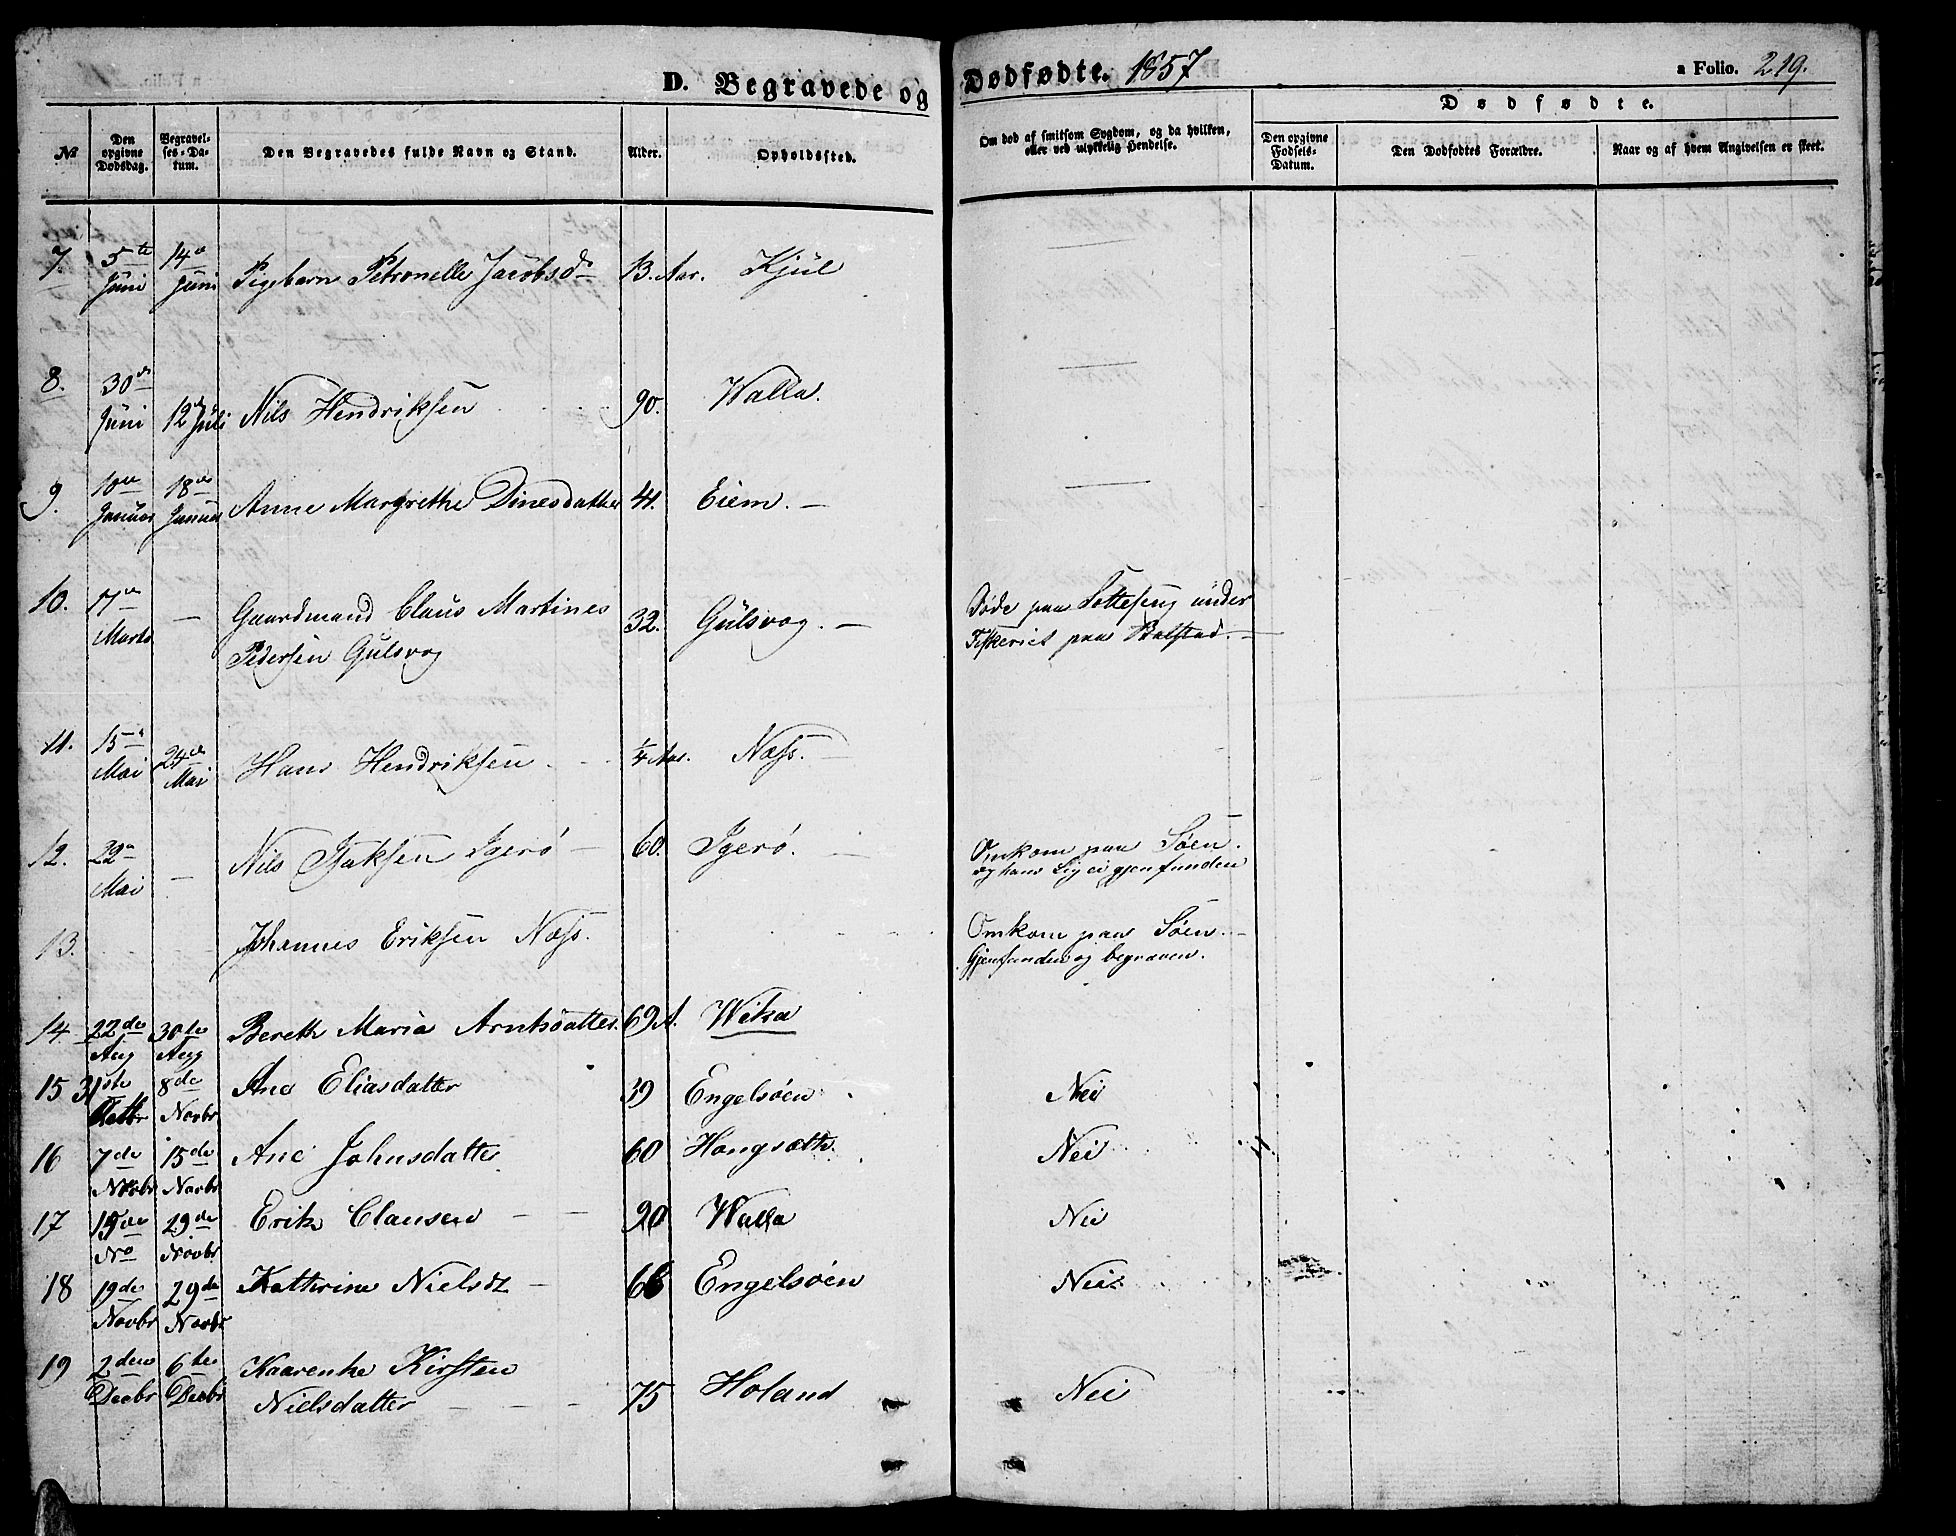 D. Begravede og Dødfødte. 1857 a Folio. 219.
№ Den opgivne Dødsdag. Begravelses-Datum. Den Begravedes fulde Navn og Stand. Alder. Opholdssted. Om død af smitsom Sygdom, og da hvilken, eller ved ulykkelig Hendelse. Dødfødte. Den opgivne Fødsels-Datum. Den Dødfødtes Forældre. Naar og af hvem Angivelsen er skeet.
7. 5te Juni 14de Juni Pigebarn Petronelle Jacobsd. 13. Aar. Kjul —
8. 30de Juni 12te Juli Nils Hendriksen 90. Walla. —
9. 10de Januar 18de Januar Anne Margrethe Dinesdatter 41. Eiem. — —
10. 17de Marts — Gaardmand Claus Martines 32. Gulsvog. — Døde paa Sotteseng under
Pedersen Gulsvog Fiskeriet paa Balstad. —
11. 15de Mai 24de Mai Hans Hendriksen ¼ Aar. Næss. —
12. 22de Mai — Nils Isaksen Igerö — 60. Igerø. — Omkom paa Søen.
og hans Lig ei gjenfunden
13. Johannes Eriksen Næss. Omkom paa Søen. —
Gjenfunden og begraven.
14 22de Aug 30te Aug Bereth Maria Arntsdatter 69 A. Witsø
15 31ste Octbr 8de Novbr Ane Eliasdatter 39 Engelsøen Nei
16 7de Novbr 15de Novbr Ane Johnsdatter 60 Hongsæth. Nei
17 15de No 29de Novbr Erik Clausen — — 90 Walla Nei
18 19de Novbr 29de Novbr Kathrine Nielsd. — 66 Engelsøen Nei
19 2den Decbr 6te Decbr Kaarenke Kirsten
Nielsdatter — — — 75 Holand Nei